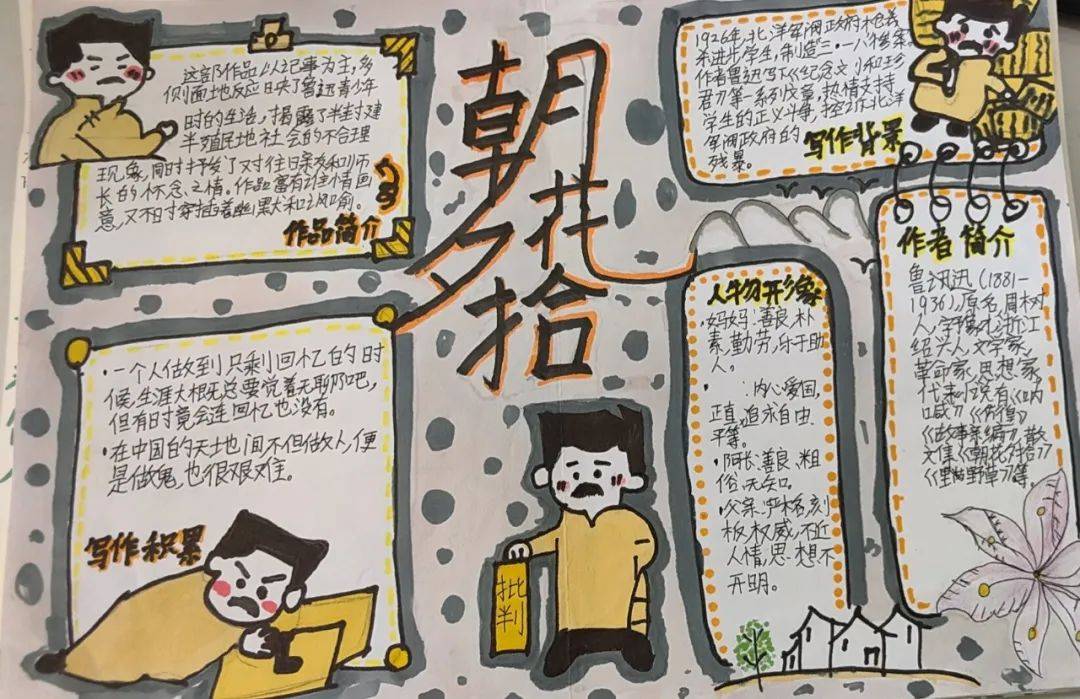 朝花夕拾
这部作品以记事为主,多
侧面地反应映了鲁迅青少年
时的生活,揭露了半封建
半殖民地社会的不合理
现象,同时抒发了对往日亲友和师
长的怀念之情。作品富有诗情画
意,又不时穿插着幽默和讽喻。
作品简介
1926年,北洋军阀政府枪杀
杀进步学生,制造三·一八惨案,
作者鲁迅写下《纪念刘和珍
君》等一系列文章,热情支持
学生的正义斗争,控诉北洋
军阀政府的
残暴。
写作背景
·一个人做到只剩回忆的时
候,生涯大概总要觉着无聊了吧,
但有时竟会连回忆也没有。
·在中国的天地间不但做人,便
是做鬼,也很艰难。
写作积累
批判
人物形象
·妈妈:善良、朴
素、勤劳,乐于助
人。
· :内心爱国,
正直,追求自由、
平等。
·阿长:善良、粗
俗、无知。
·父亲:严格,刻
板,权威,不近
人情,思想不
开明。
作者简介
鲁迅(1881-
1936),原名周树
人,字豫才,浙江
绍兴人,文学家、
革命家、思想家,
代表小说有《呐
喊》《彷徨》
《故事新编》,散
文集《朝花夕拾》
《野草》等。